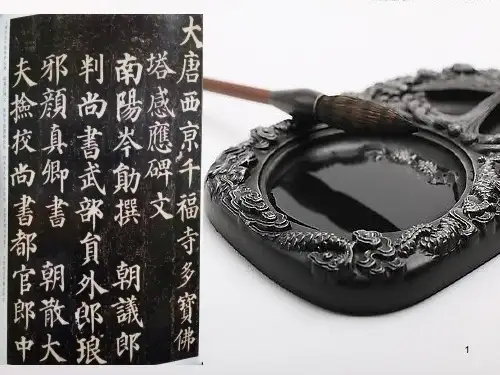 大唐西京千福寺多寳佛
塔感應碑文
南陽岑勛撰 朝議郎
判尚書武部員外郎琅
邪顔真卿書 朝散大
夫撿校尚書都官郎中
1